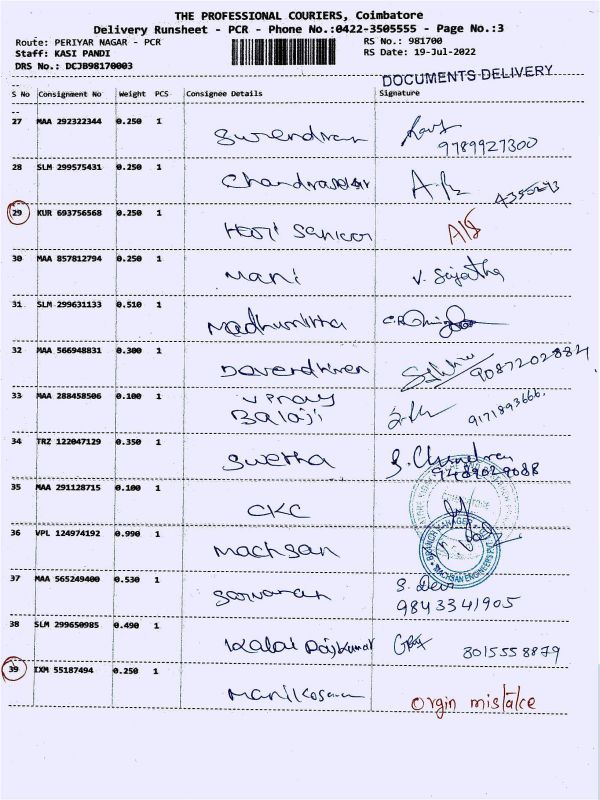 THE PROFESSIONAL COURIERS, Coimbatore
Delivery Runsheet - PCR - Phone No.:0422-3505555 - Page No.:3
Route: PERIYAR NAGAR - PCR RS No.: 981700
Staff: KASI PANDI RS Date: 19-Jul-2022
DRS No.: DCJB98170003
DOCUMENTS DELIVERY
S No Consignment No Weight PCS Consignee Details Signature
27 MAA 292322344 0.250 1 Surendran
9789927300
28 SLM 299575431 0.250 1 Chandrasekar
29 KUR 693756568 0.250 1 Hari
30 MAA 857812794 0.250 1 Mani V. Sujatha
31 SLM 299631133 0.510 1 Madhumitha
32 MAA 566948831 0.300 1 9087202884
33 MAA 288458506 0.100 1
Balaji 9171893666.
34 TRZ 122047129 0.350 1 Swetha S. Chandran
9489029088
35 MAA 291128715 0.100 1 CKC
36 VPL 124974192 0.990 1 Machsan
BRANCH MANAGER
MACHSAN ENGINEERS
37 MAA 565249400 0.530 1 Saravanan S. Devi
9843341905
38 SLM 299650985 0.490 1 Kalai Rajkumar 8015558879
39 IXM 55187494 0.250 1 Manikasaran orgin mistake